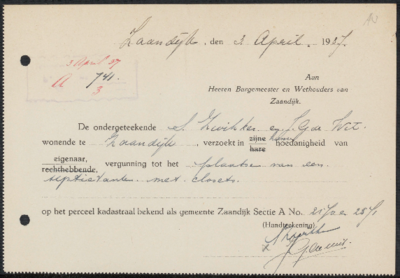 Zaandijk, den 3 April 1937.
3 April 37
A 741.
3
Aan
Heeren Burgemeester en Wethouders van
Zaandijk.
De ondergeteekende S. Zwikker en J. G. de Wit
wonende te Zaandijk, verzoekt in zijne hunne hoedanigheid van
hare
eigenaar, vergunning tot het plaatsen van een
rechthebbende,
septictank met closets.
op het perceel kadastraal bekend als gemeente Zaandijk Sectie A No.
(Handteekening)